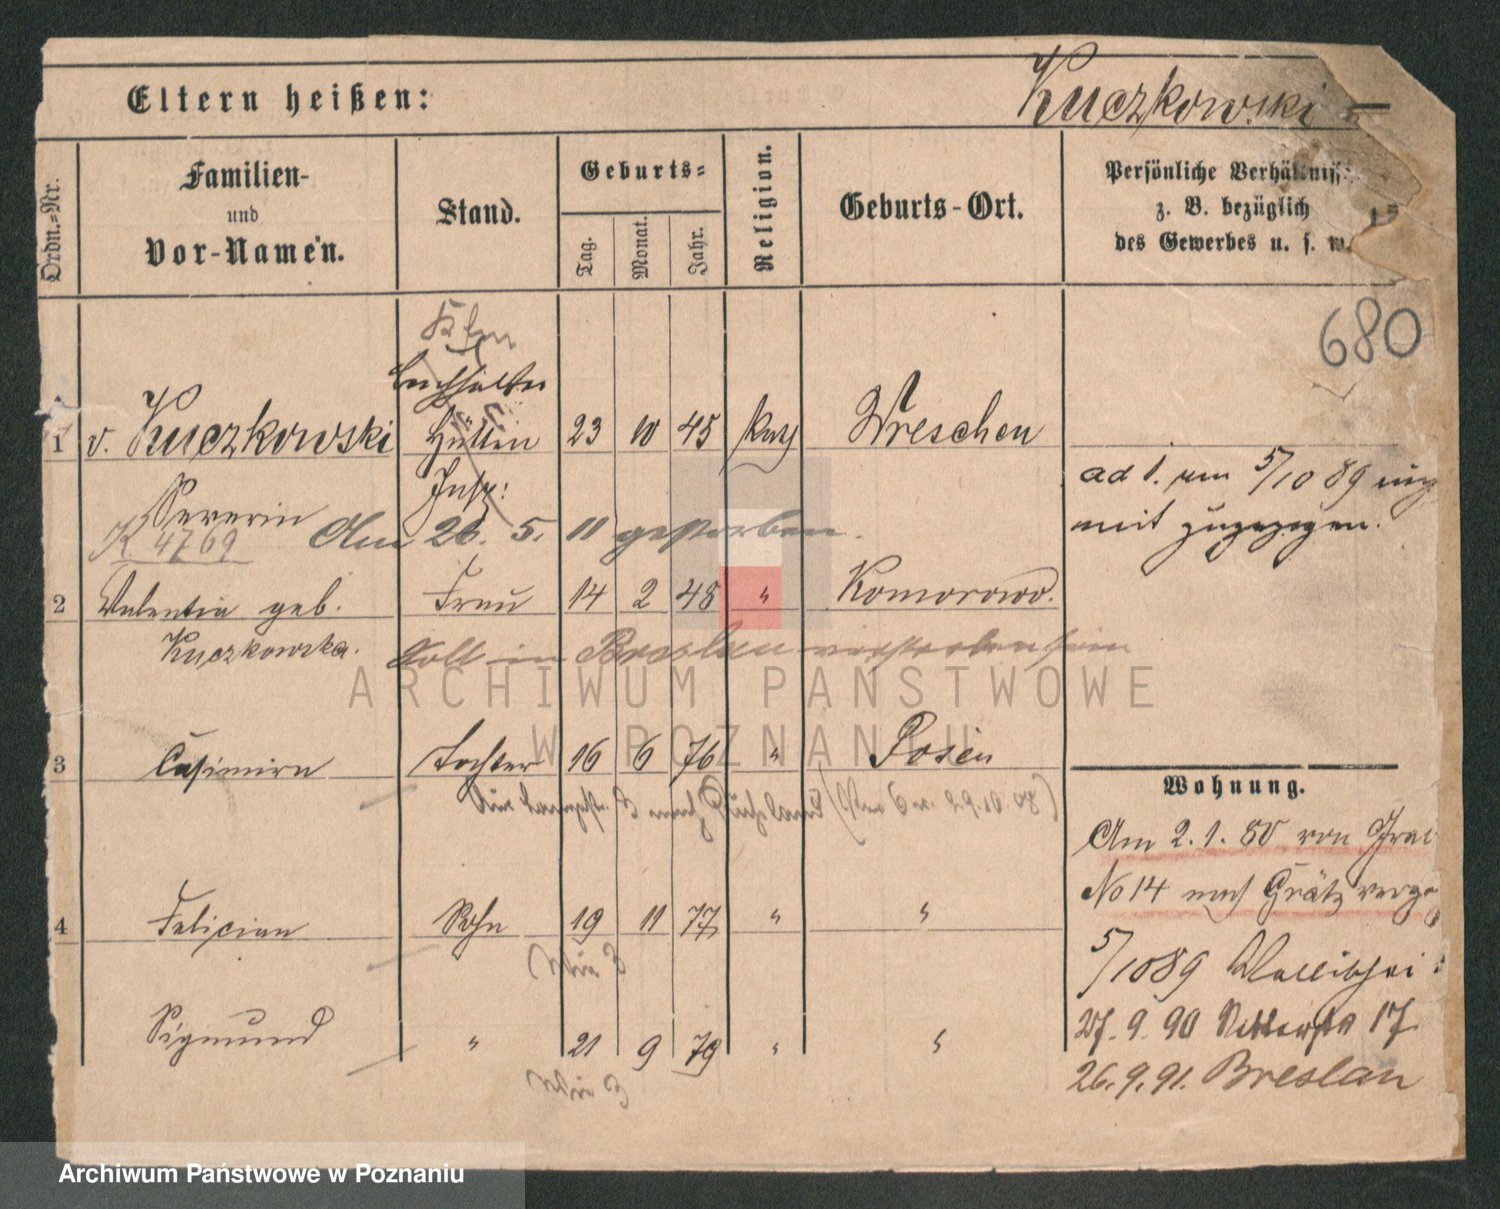 Eltern heißen:
Kuczkowski
Ordn.-Nr.
Familien-
und
Vor-Namen.
Stand.
Geburts-
Tag.
Monat.
Jahr.
Religion.
Geburts-Ort.
Persönliche Verhältniss
z. B. bezüglich
des Gewerbes u. s. w.
15
680
Buchhalter
1 v. Kuczkowski Hütten 23 10 45 kath Wreschen
Insp:
ad 1. am 5/10 89
mit zugezogen.
Severin
K 4769
Am 26. 5. 11 gestorben.
2 Valentia geb. Frau 14 2 48 " Komorowo.
Kuczkowska.
Soll in Breslau verstorben sein
ARCHIWUM PAŃSTWOWE
W POZNANIU
3 Casimira Tochter 16 6 76 " Posen
nach 29.10
Wohnung.
Am 2. 1. 80 von
No 14 nach Grätz verzo
4 Felician Sohn 19 11 77 " "
5/10 89
Sigmund " 21 9 79 " "
27. 9. 90 Ritterstr 17
26. 9. 91. Breslau
Archiwum Państwowe w Poznaniu